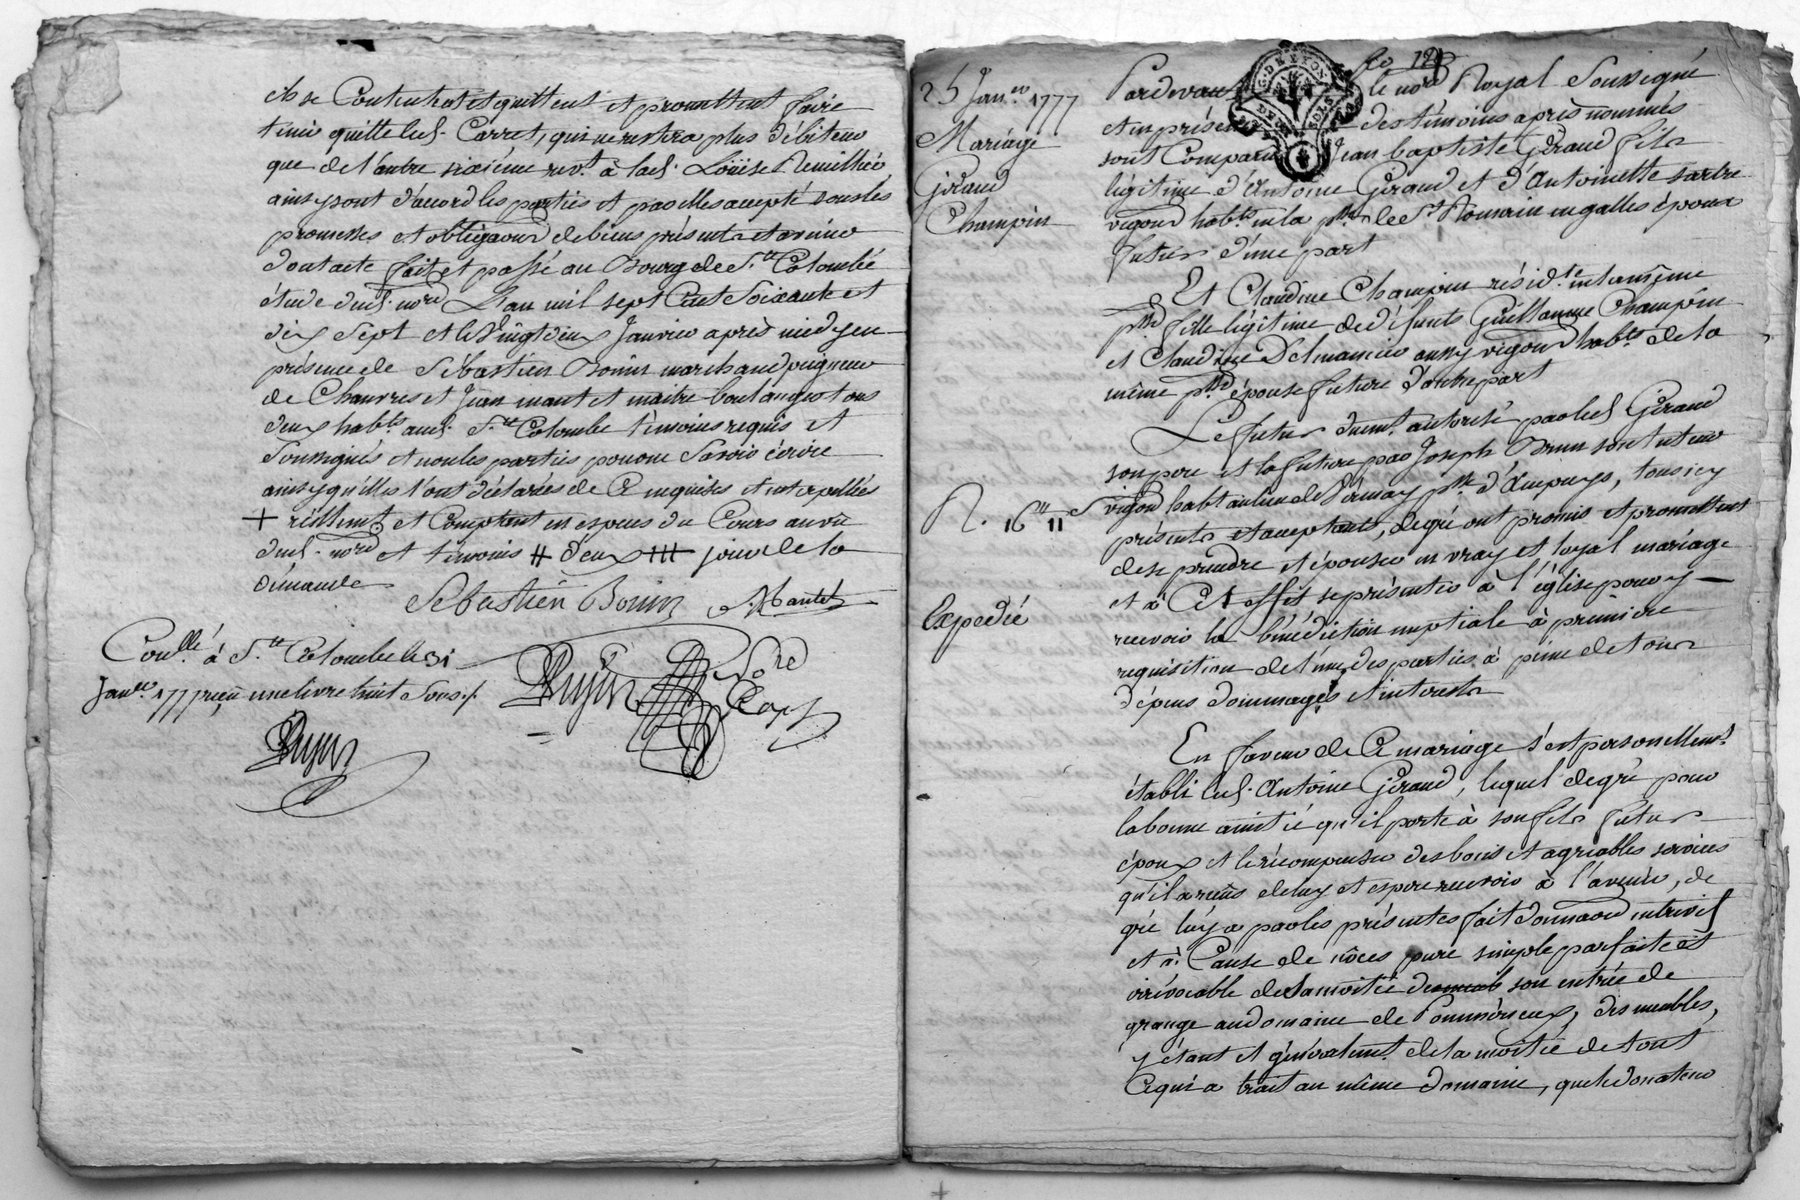 et se Contentent et quittent et promettent faire
tenir quitte led. Carret, qui ne restera plus débiteur
que de l'autre sixième rev.t à lad. Loüise Remilhié
ainsy sont d'accord les parties et par elles accepté sous les
promesses et obligaons de biens présents et avenir
dont acte fait et passé au Bourg de S.te Colombe
étude dud. no.re L'an mil sept Cent Soixante et
dix Sept et le Vingt deux Janvier après midy en
présence de Sébastien Bonin marchand peigneur
de Chanvres et Jean mantet maitre boulanger tous
deux hab.ts aud. S.te Colombe témoins requis et
Soussignés et non les parties pour ne Savoir écrire
ainsy qu'elles l'ont déclarées de Ce enquises et interpellées
+ réellemt et Comptant en espèces du Cours au vû
dud. no.re et témoins # d'eux ### jour de la
demande
Sébastien Bonin J. Mantet
Con.llé à S.te Colombe le 31
Jan.er 1777 reçu une livre huit Sous ./.
Dujin
Dujin No.re Roy.l
f.o 12
25 Jan.er 1777
Mariage
Giraud
Champin
R. 16.tt 11 s
Expedié
G. DE LYON
DEUX SOLS
Pardevant le no.re Royal Soussigné
et en présence des témoins après nommés
sont Comparus Jean baptiste Giraud fils
légitime d'Antoine Giraud et d'Antoinette sartre
vigon hab.ts en la p.sse de S.t Romain en galles époux
futur d'une part
Et Claudine Champin résid.te en la même
p.sse fille légitime de défunts Guillaume Champin
et Claudine Delmancier aussy vigon hab.ts de la
même p.sse épouse future d'autre part
Le futur duem.t autorisé par led. Giraud
son pere et la future par Joseph Brun son tuteur
vigon habt au lieu de Vérenay p.sse d'Ampuys, tous icy
présents et acceptants, de gré ont promis et promettent
de se prendre et épouser en vray et loyal mariage
et à Cet effet se présenter à l'église pour y
recevoir la bénédiction nuptiale à première
requisition de l'une des parties à peine de tous
dépens dommages et interests
En faveur de Ce mariage s'est personellem.t
établi led. Antoine Giraud, lequel de gré pour
la bonne amitié qu'il porte à son fils futur
époux et le récompenser des bons et agréables services
qu'il a reçus de luy et espere recevoir à l'avenir, de
gré luy a par les présentes fait donnaon entrevifs
et à Cause de nôces pure simple parfaite et
irrévocable de la moitié de son entrée de
grange au domaine de Pommérieux, des meubles,
y étant et généralem.t de la moitié de tout
Ce qui a trait au même domaine, que le donateur